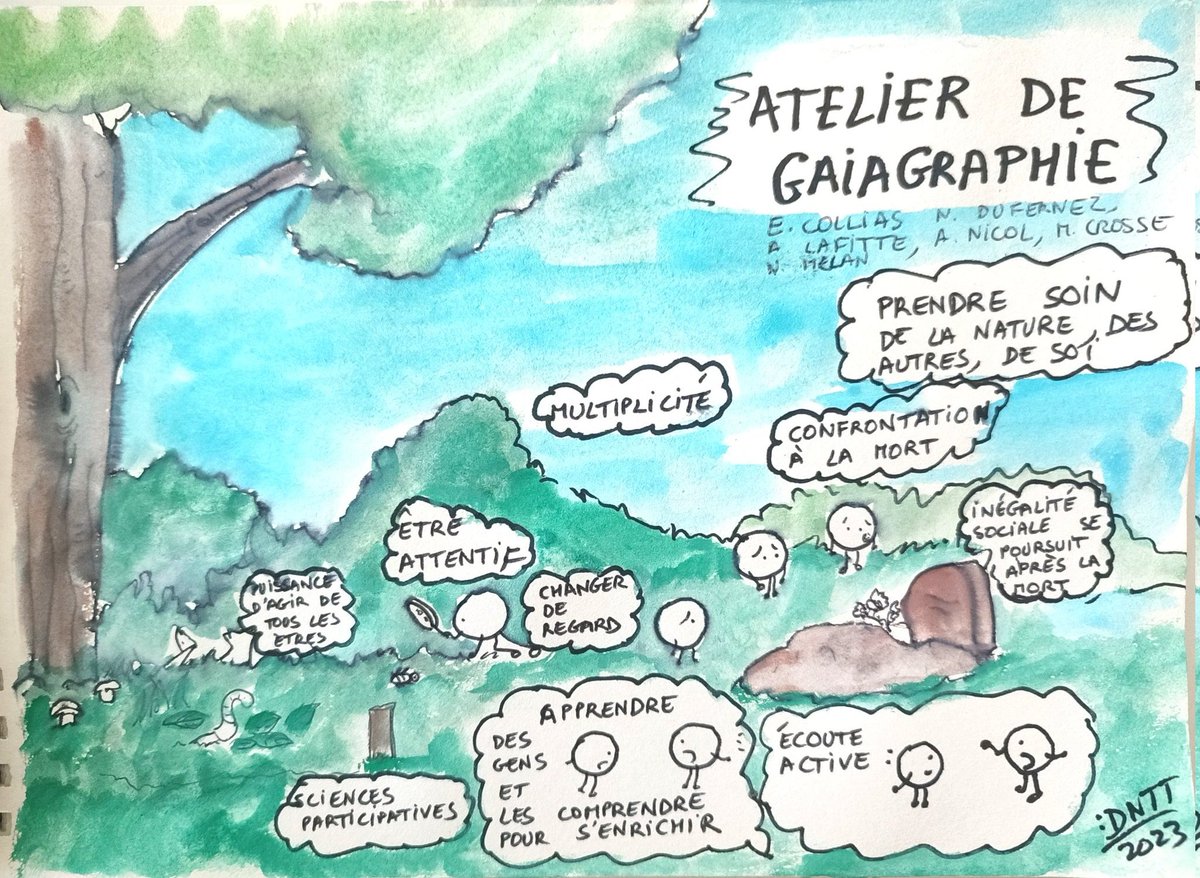 ATELIER DE
GAIAGRAPHIE
E. COLLIAS N. DUFERNEZ,
A LAFITTE, A. NICOL, M. CROSSE
N. MELAN
PRENDRE SOIN
DE LA NATURE, DES
AUTRES, DE SOI
MULTIPLICITÉ
CONFRONTATION
À LA MORT
INÉGALITÉ
SOCIALE SE
POURSUIT
APRÈS LA
MORT
ÊTRE
ATTENTIF
PUISSANCE
D'AGIR DE
TOUS LES
ÊTRES
CHANGER
DE
REGARD
APPRENDRE
DES
GENS
ET
LES COMPRENDRE
POUR S'ENRICHIR
ÉCOUTE
ACTIVE :
SCIENCES
PARTICIPATIVES
:DNTT
2023